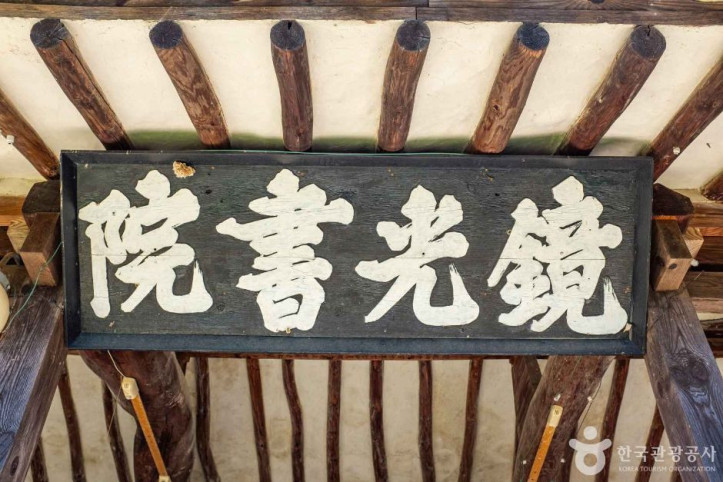 鏡光書院
한국관광공사
KOREA TOURISM ORGANIZATION